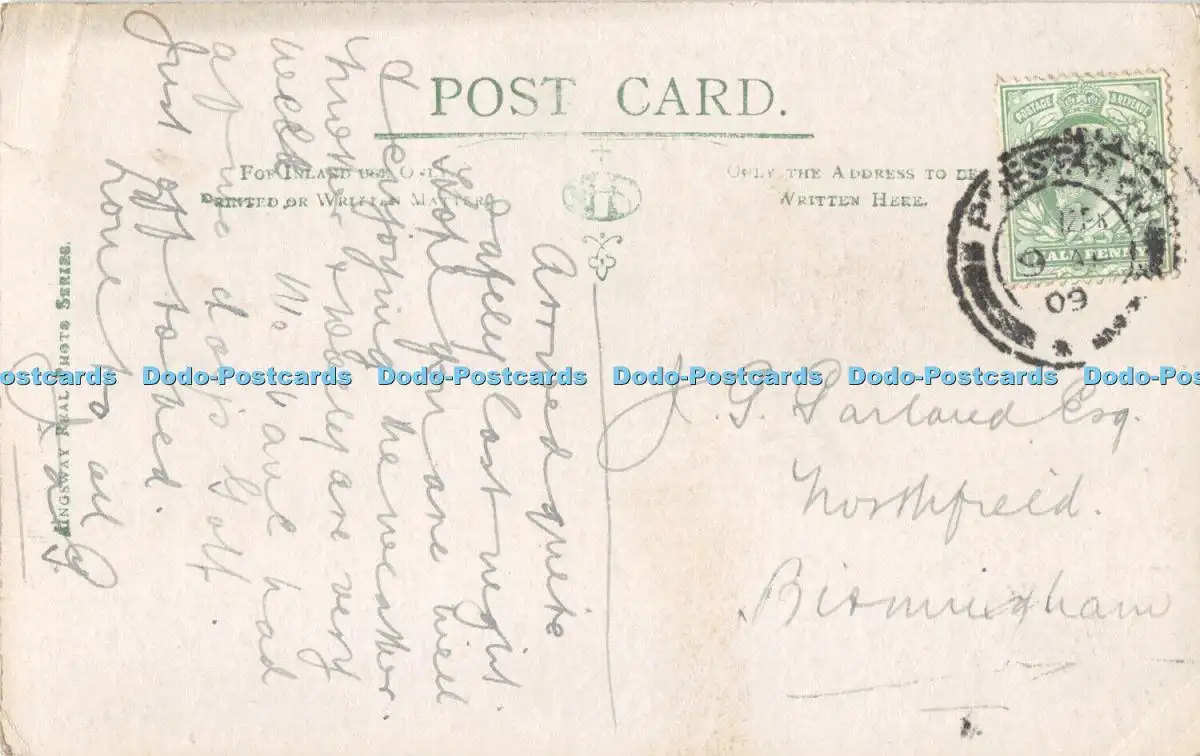 POST CARD.
FOR INLAND USE ONLY
PRINTED OR WRITTEN MATTER.
ONLY THE ADDRESS TO BE
WRITTEN HERE.
POSTAGE & REVENUE
HALFPENNY
PRESTATYN
9
09
KINGSWAY REAL PHOTO SERIES.
Arrived quite
safely last night.
Hope you are well
& enjoying the weather.
& Wales are very
well. We have had
a fine day's Golf.
Just off to bed.
Love to all
J. G. Garland Esq.
Northfield.
Birmingham
Dodo-Postcards Dodo-Postcards Dodo-Postcards Dodo-Postcards Dodo-Postcards